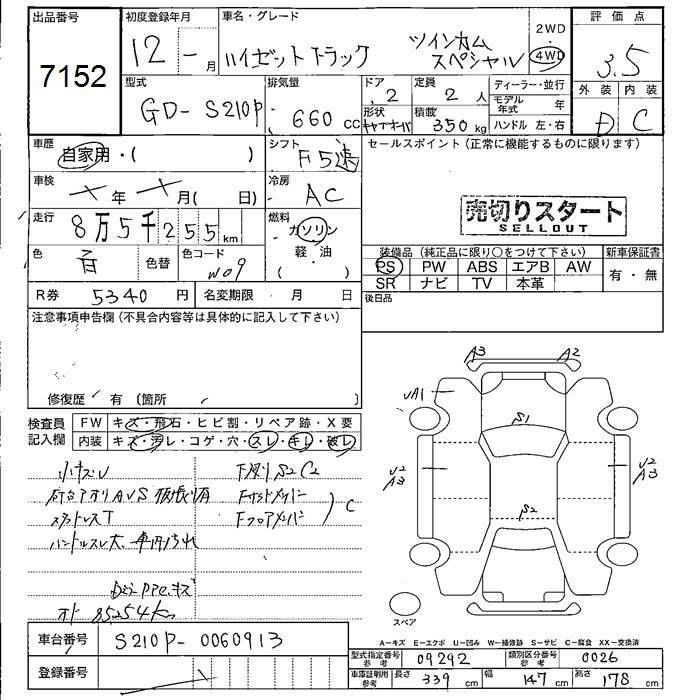 出品番号
7152
初度登録年月
12 - 月
車名・グレード
ハイゼット トラック
ツインカム
スペシャル
2WD
4WD
評価点
3.5
型式
GD- S210P
排気量
660 CC
ドア
2
形状
定員
2 人
積載
350 kg
ディーラー・並行
モデル年式 年
ハンドル 左・右
外装 内装
D C
車歴
自家用・( )
シフト
F5速
セールスポイント(正常に機能するものに限ります)
車検
年 月( 日)
冷房
AC
売切りスタート
SELLOUT
走行
8万5千255 km
燃料
ガソリン
軽・油
( )
色
白
色替
色コード
W09
装備品(純正品に限り〇をつけて下さい)
新車保証書
PS PW ABS エアB AW
SR ナビ TV 本革
有・無
R券 5340 円
名変期限 月 日
後日品
注意事項申告欄(不具合内容等は具体的に記入して下さい)
修復歴 有 〔箇所
検査員
記入欄
FW キズ・飛石・ヒビ割・リペア跡・X要
内装 キズ・汚レ・コゲ・穴・スレ・キレ・破レ
小キズU
下廻りS2C2
荷台アオリAUS
Fサイドメンバー
Fフロアメンバー
C
ハンドルスレ大
85254km
A3 A2
UA1
S1
U2
A3
U2
A3
S2
スペア
A-キズ E-エクボ U-凹み W-補修跡 S-サビ C-腐食 XX-交換済
車台番号 S210P-0060913
登録番号
型式指定番号
参考
09292
類別区分番号
参考
0026
車庫証明用
参考
長さ 339 cm
幅 147 cm
高さ 178 cm